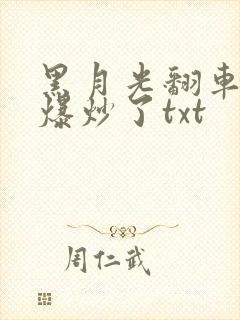 黑月光翻車
爆炒了txt
周仁武